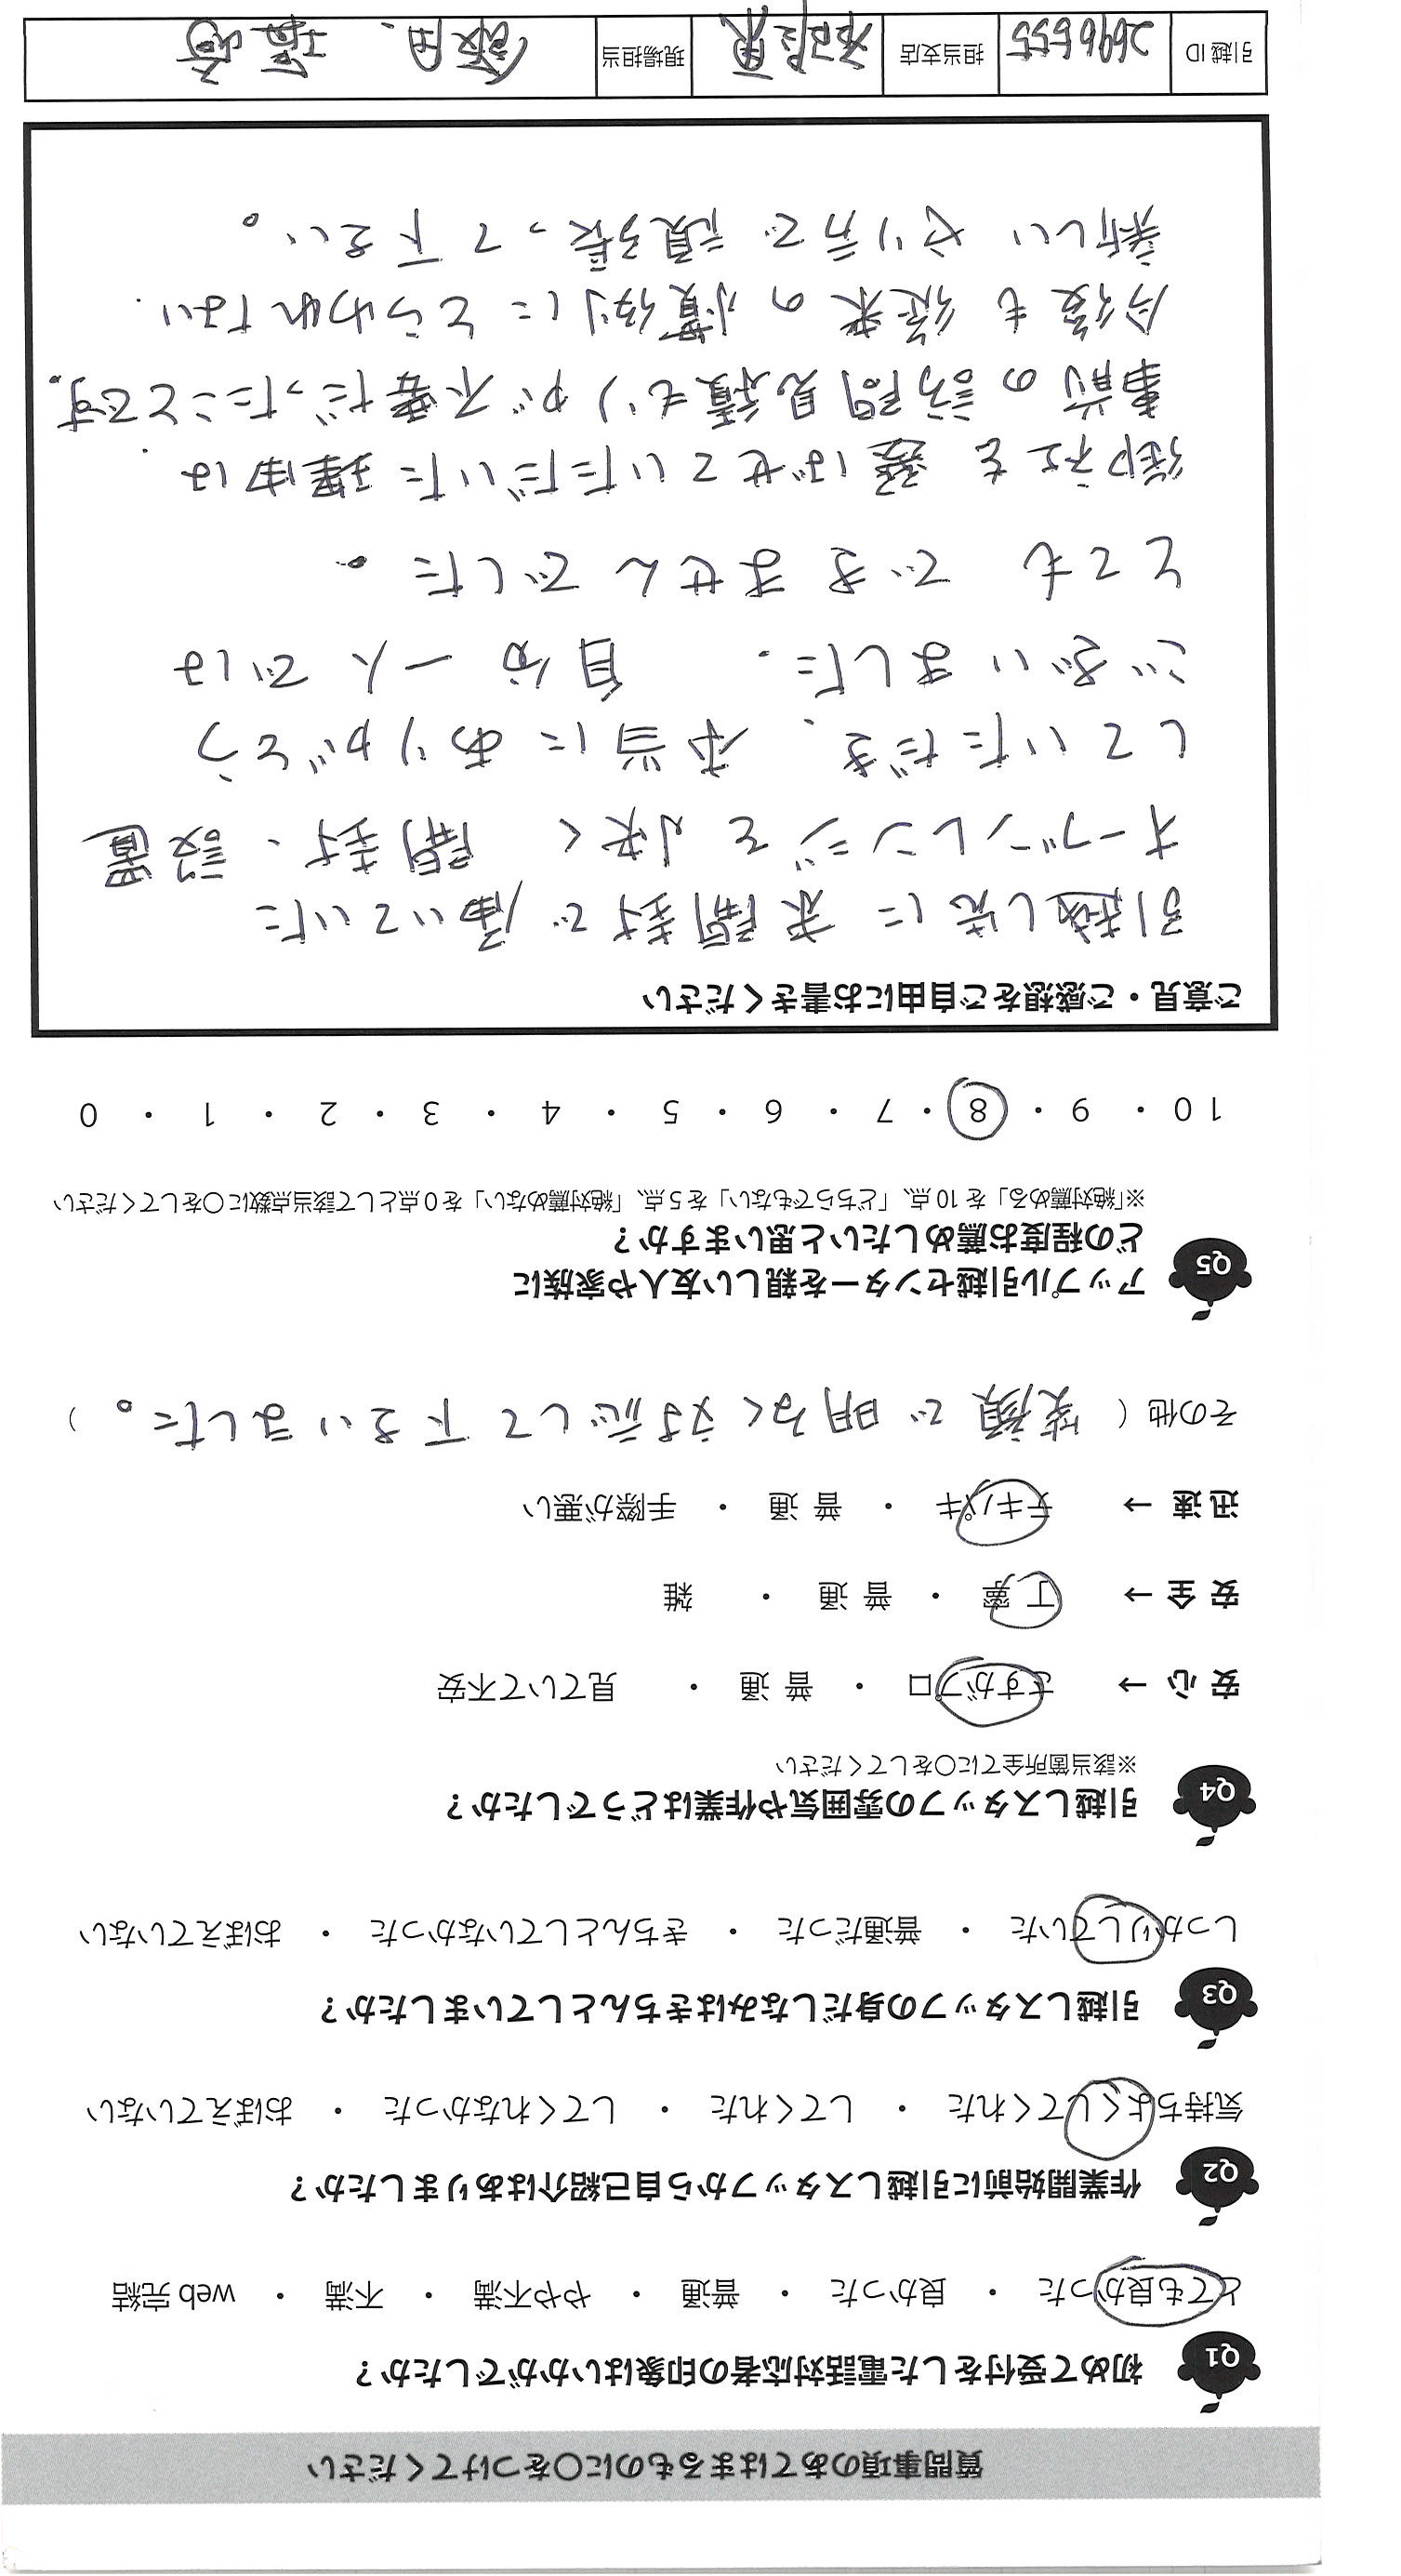 質問事項のあてはまるものに○をつけてください
Q1 初めて受付をした電話対応者の印象はいかがでしたか?
とても良かった ・ 良かった ・ 普通 ・ やや不満 ・ 不満 ・ web完結
Q2 作業開始前に引越しスタッフから自己紹介はありましたか?
気持ちよくしてくれた ・ してくれた ・ してくれなかった ・ おぼえていない
Q3 引越しスタッフの身だしなみはきちんとしていましたか?
しっかりしていた ・ 普通だった ・ きちんとしていなかった ・ おぼえていない
Q4 引越しスタッフの雰囲気や作業はどうでしたか?
※該当箇所全てに○をしてください
安心→ さすがプロ ・ 普通 ・ 見ていて不安
安全→ 丁寧 ・ 普通 ・ 雑
迅速→ テキパキ ・ 普通 ・ 手際が悪い
その他( 笑顔で明るく対応して下さいました。 )
Q5 アップル引越センターを親しい友人や家族に
どの程度お薦めしたいと思いますか?
※「絶対薦める」を10点、「どちらでもない」を5点、「絶対薦めない」を0点として該当点数に○をしてください
10 ・ 9 ・ 8 ・ 7 ・ 6 ・ 5 ・ 4 ・ 3 ・ 2 ・ 1 ・ 0
ご意見・ご感想をご自由にお書きください
引越し先に未開封で届いていた
オーブンレンジを快く 開封、設置
していただき、本当にありがとう
ございました。 自分一人では
とても できませんでした。
御社を選ばせていただいた理由は
事前の訪問見積もりが不要だったことです。
今後も従来の慣例にとらわれない
新しいやり方で頑張って下さい。
引越ID 2696555 担当支店 現場担当 飯田、